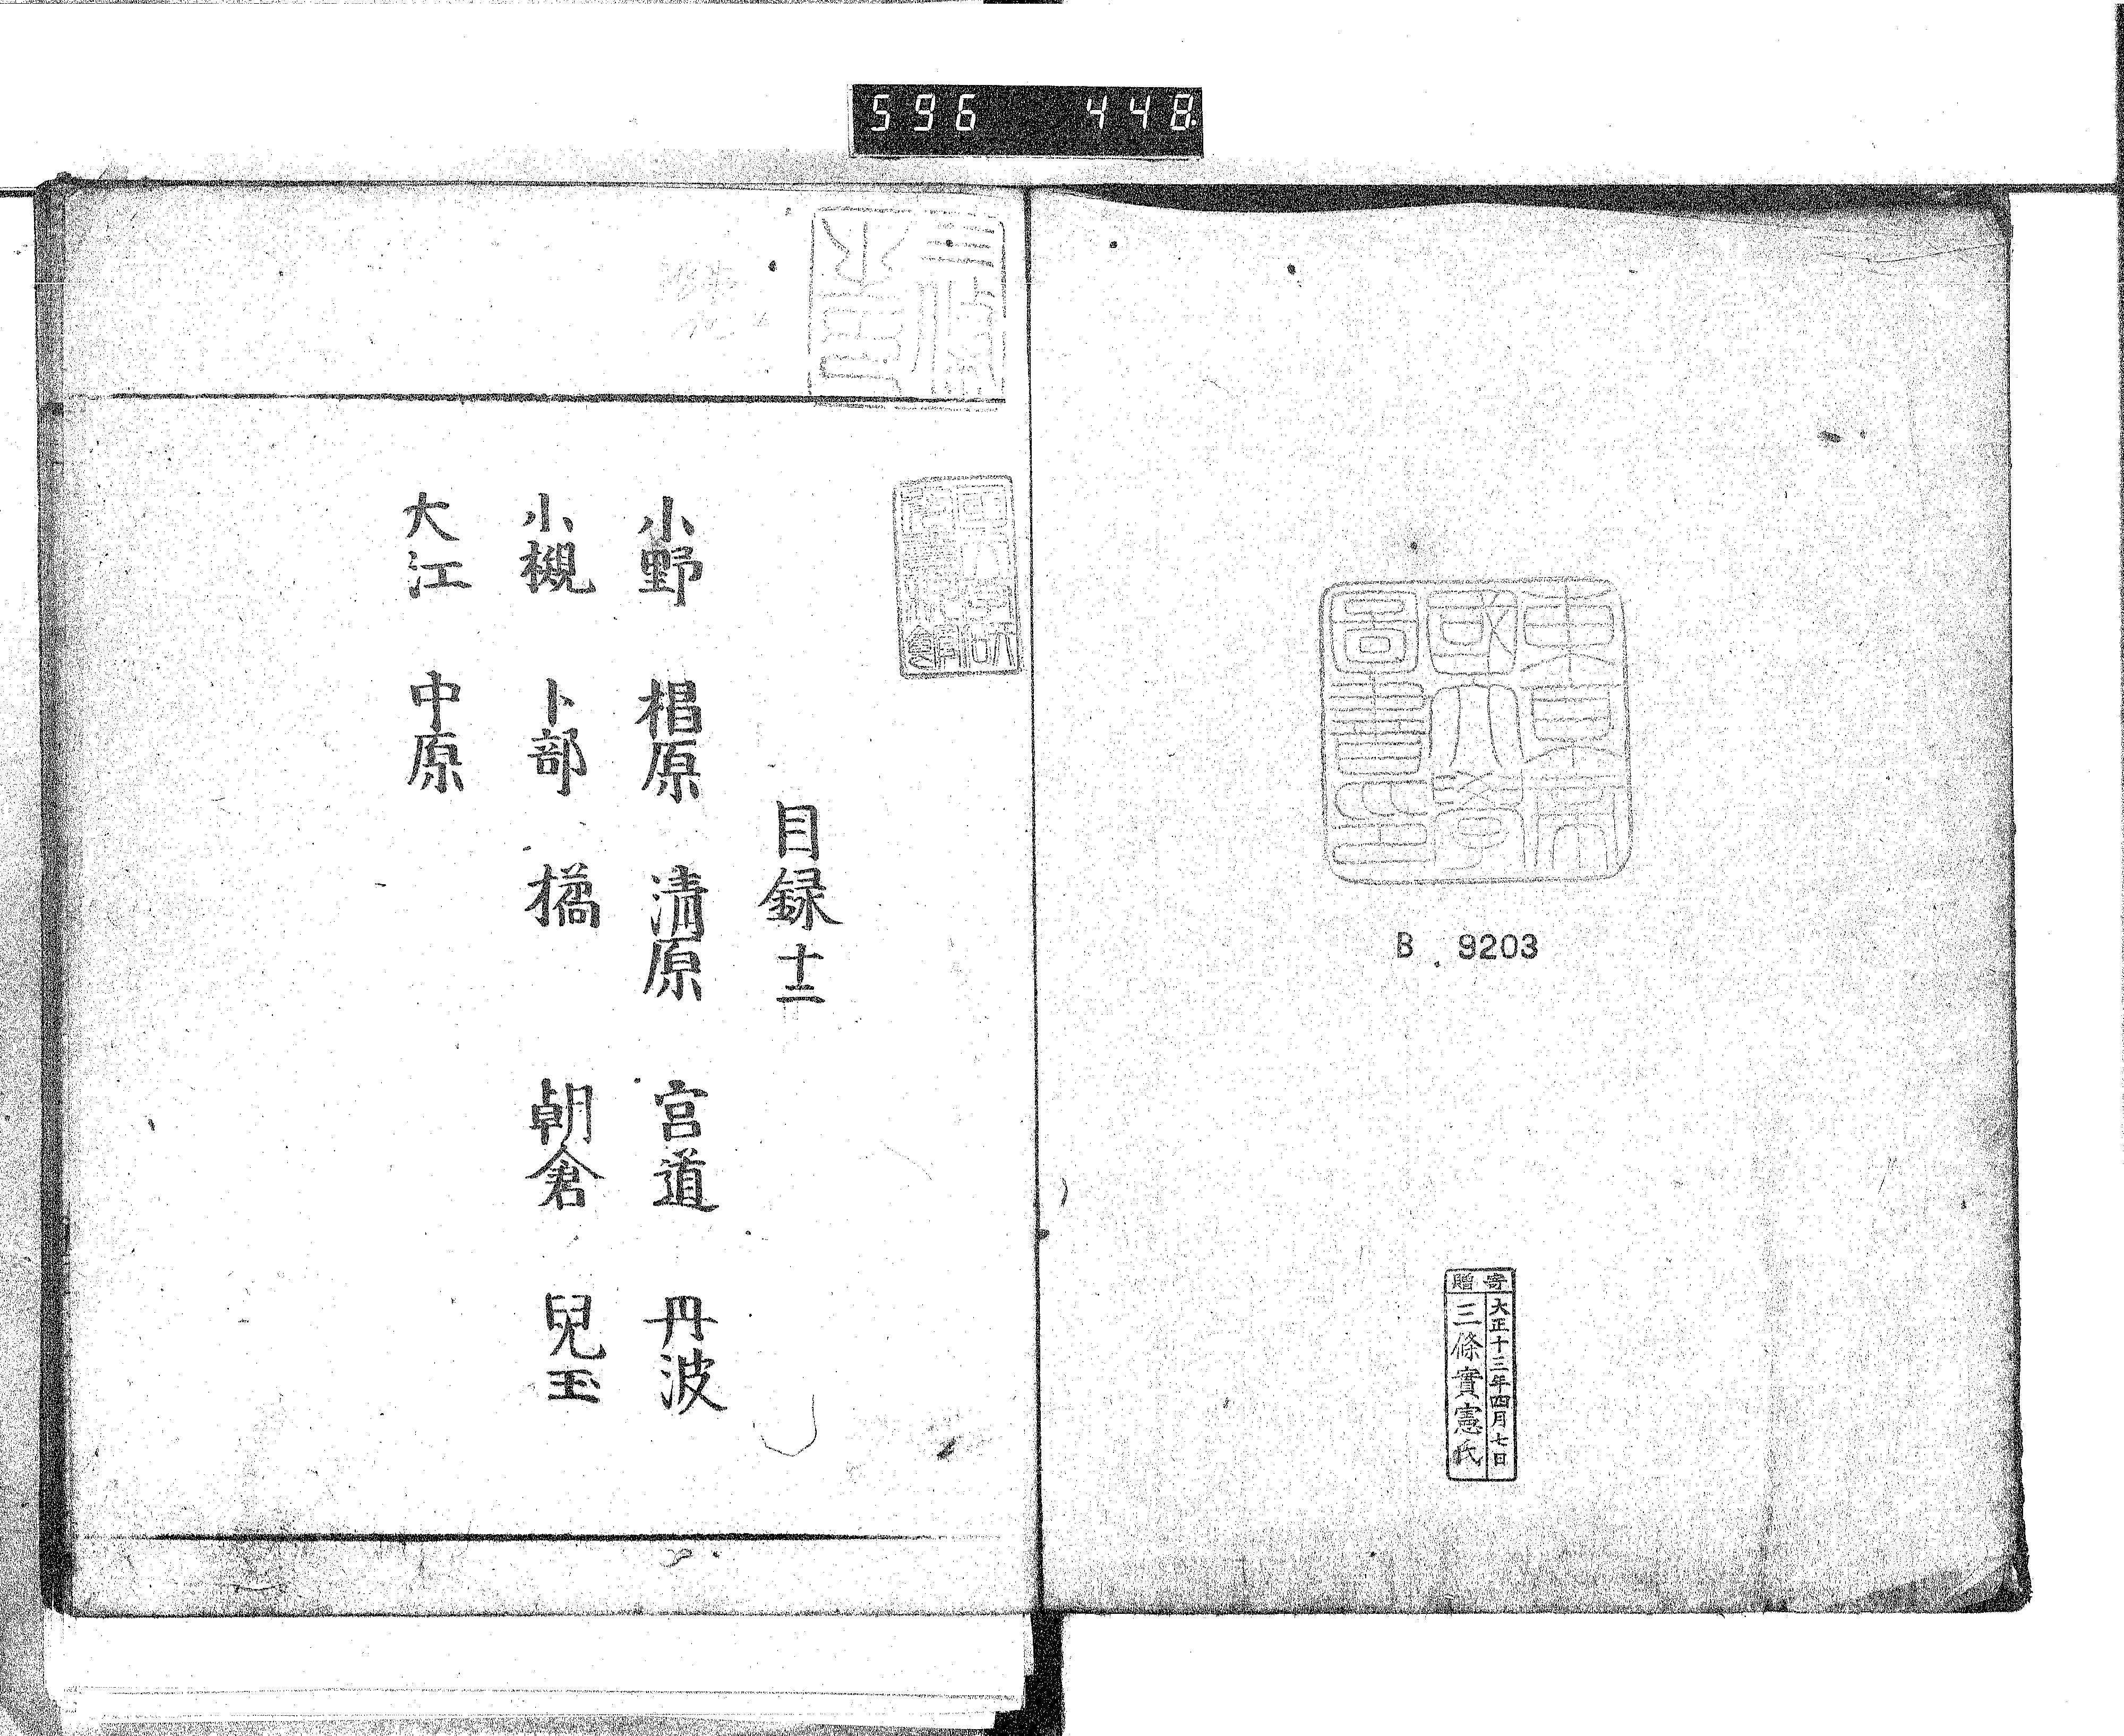 596 448
東京帝
國大學
圖書印
B 9203
寄贈
大正十三年四月七日
三條實憲氏
目録十二
小野 楒原 清原 宮道 丹波
小槻 卜部 橘 朝倉 兒玉
大江 中原